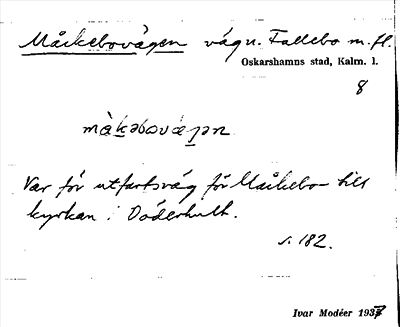 Måckebovägen vägn. Fallebo m.fl.
Oskarshamns stad, Kalm. l.
8
Var för utfartsväg för Måckebo till
kyrkan i Döderhult.
s. 182.
Ivar Modéer 1937